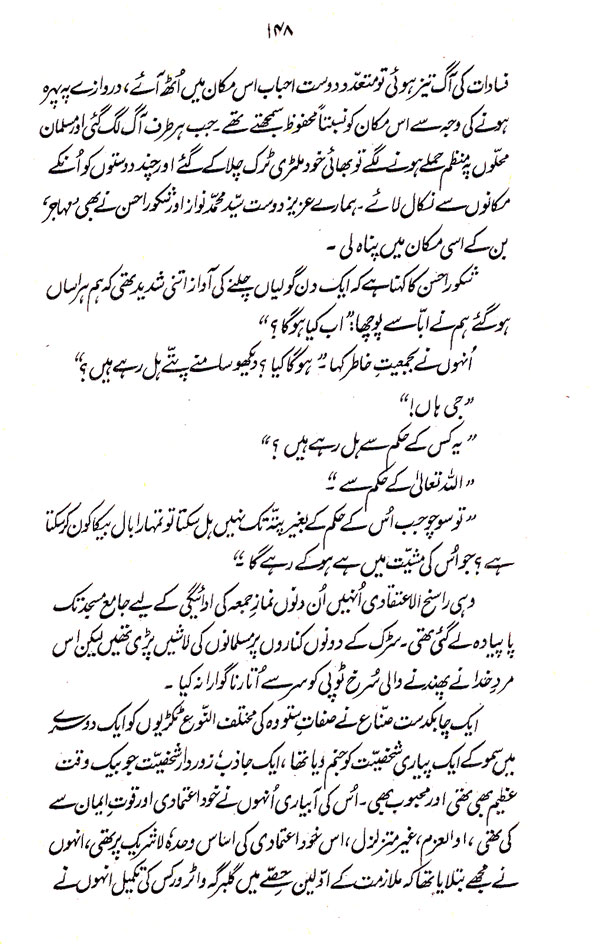 ۱۴۸
فسادات کی آگ تیز ہوئی تو متعدد دوست احباب اس مکان میں اُٹھ آئے، دروازے پہ پہرہ
ہونے کی وجہ سے اس مکان کو نسبتاً محفوظ سمجھتے تھے۔ جب ہر طرف آگ لگ گئی اور مسلمان
محلّوں پہ منظم حملے ہونے لگے تو بھائی خود ملٹری ٹرک چلا کے گئے اور چند دوستوں کو اُنکے
مکانوں سے نکال لائے۔ ہمارے عزیز دوست سیّد محمّد نواز اور شکور احسن نے بھی ’مہاجر‘
بن کے اسی مکان میں پناہ لی۔
شکور احسن کا کہنا ہے کہ ایک دن گولیاں چلنے کی آواز اتنی شدید تھی کہ ہم ہراساں
ہو گئے ہم نے ابّا سے پوچھا: ”اب کیا ہوگا؟“
اُنہوں نے بجمعیتِ خاطر کہا۔ ”ہوگا کیا؟ دیکھو سامنے پتّے ہل رہے ہیں؟“
”جی ہاں!“
”یہ کس کے حکم سے ہل رہے ہیں؟“
”اللہ تعالیٰ کے حکم سے۔“
”تو سوچو جب اُس کے حکم کے بغیر پتّہ تک نہیں ہل سکتا تو تمہارا بال بیکا کون کر سکتا
ہے؟ جو اُس کی مشیّت میں ہے ہو کے رہے گا۔“
وہی راسخ الاعتقادی اُنہیں اُن دنوں نمازِ جمعہ کی ادائیگی کے لیے جامع مسجد تک
پا پیادہ لے گئی تھی۔ سڑک کے دونوں کناروں پر مسلمانوں کی لاشیں پڑی تھیں لیکن اس
مردِ خدا نے پھندنے والی سُرخ ٹوپی کو سر سے اُتارنا گوارا نہ کیا۔
ایک چابکدست صنّاع نے صفاتِ ستودہ کی مختلف النّوع ٹکڑیوں کو ایک دوسرے
میں سمو کے ایک پیاری شخصیّت کو جنم دیا تھا، ایک جاذب، زوردار شخصیّت جو بیک وقت
عظیم بھی تھی اور محبوب بھی۔ اُس کی آبیاری اُنہوں نے خود اعتمادی اور قوتِ ایمان سے
کی تھی، اوالعزم، غیر متزلزل، اس خود اعتمادی کی اساس وحدہٗ لاشریک پر تھی، انہوں
نے مجھے بتلایا تھا کہ ملازمت کے اوّلین حصّے میں گلبرگہ واٹر ورکس کی تکمیل انہوں نے